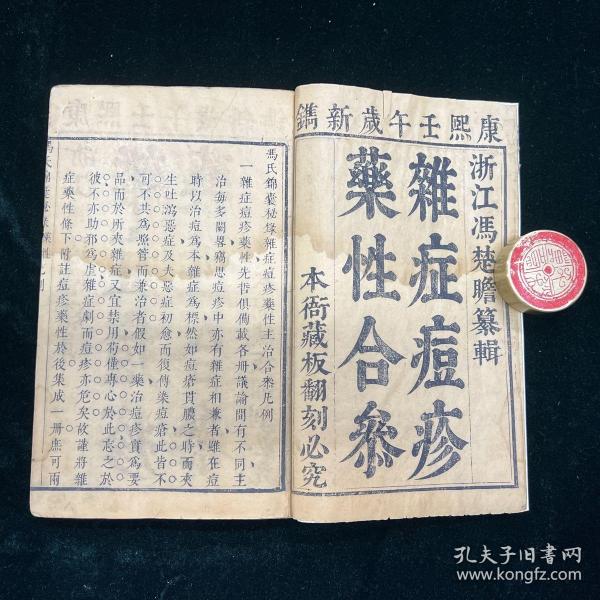 康熙壬午歲新鐫
浙江馮楚瞻纂輯
雜症痘疹
藥性合參
本衙藏板翻刻必究
馮氏錦囊秘錄雜症痘疹藥性主治合參凡例
一雜症痘疹藥性先哲俱備載各冊議論間有不同主
治每多闕畧竊思痘疹中亦有雜症相兼者雖在痘
時以治痘爲本雜症爲標然如痘瘡貫膿之時而夾
生吐瀉惡症及夫惡症初愈而復傳染痘瘡此皆不
可不共爲緊管而兼治者假如一藥治痘疹實爲要
品而於所夾雜症又宜禁用苟僅專心於此忘之於
彼不亦助邪爲虐雜症劇而痘疹亦危矣故謹將雜
症藥性條下附註痘疹藥性於後集成一冊庶可兩
孔夫子旧书网
www.kongfz.com